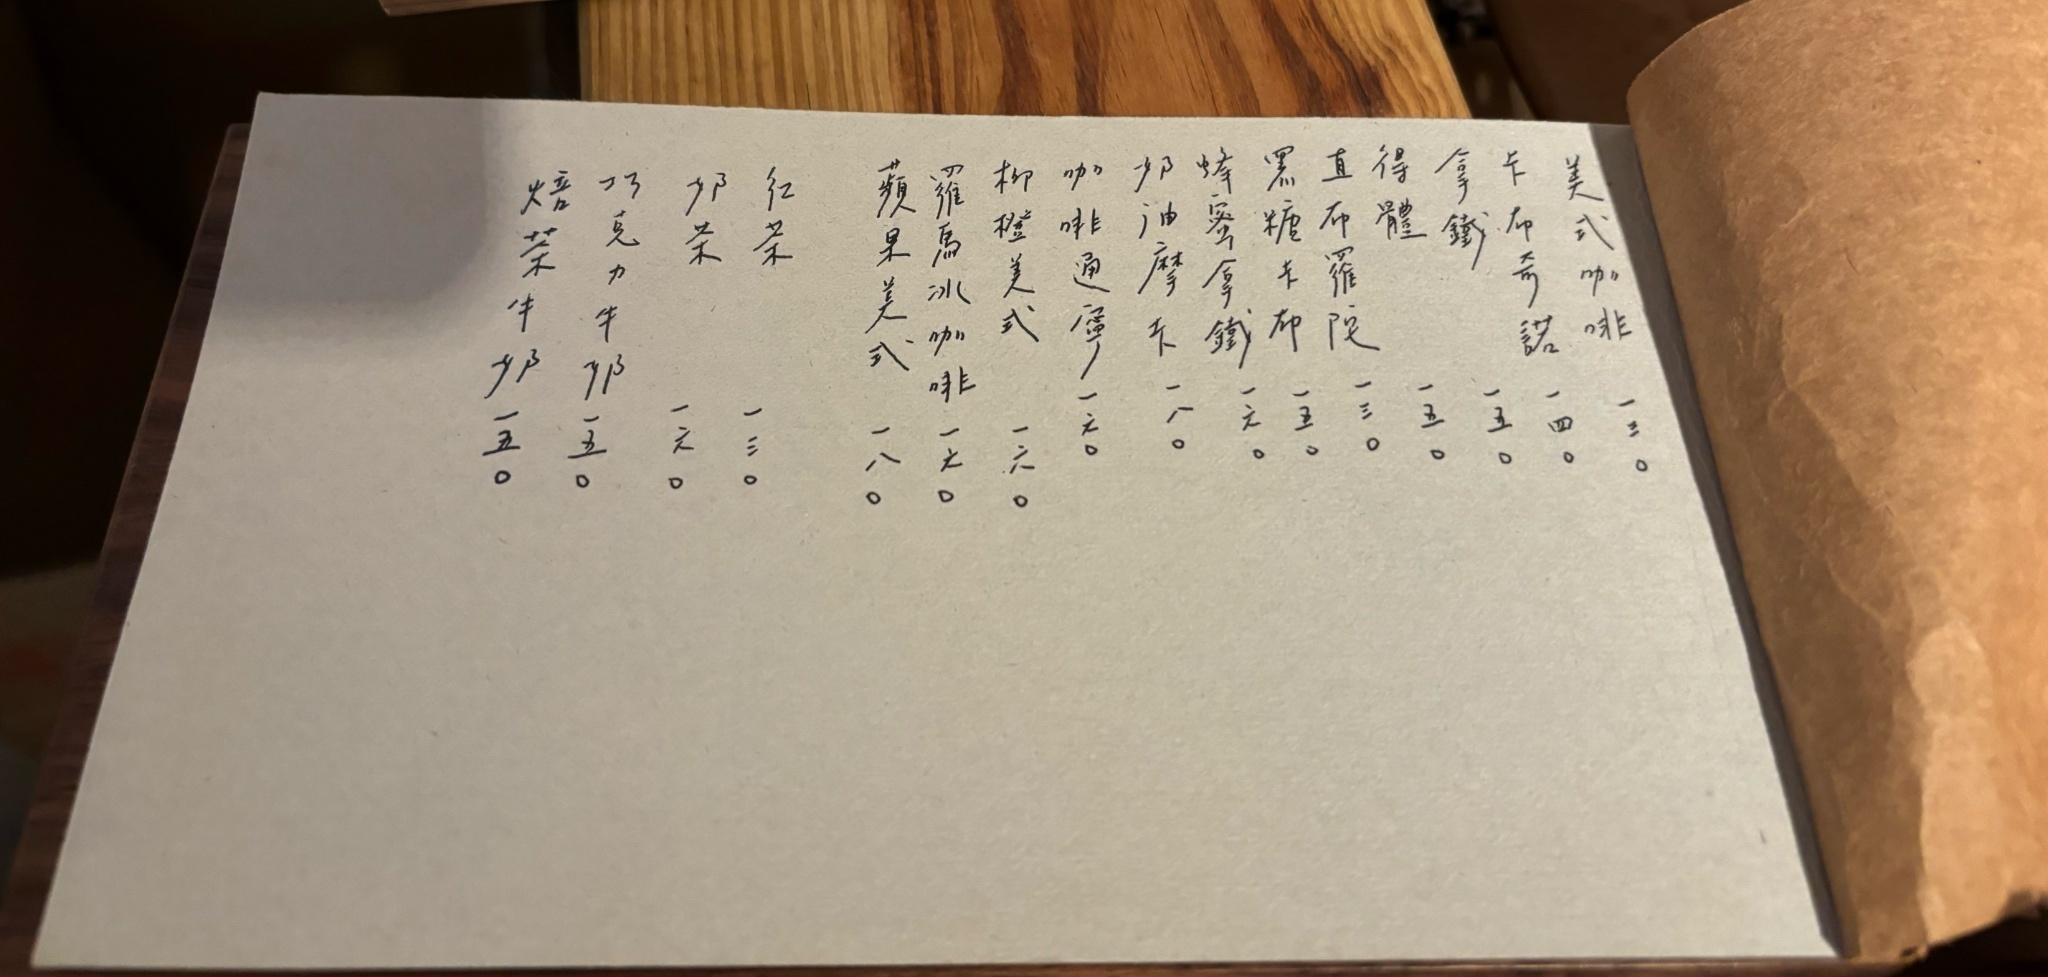 美式咖啡 一三０
卡布奇諾 一四０
拿鐵 一五０
得體 一五０
直布羅陀 一三０
黑糖卡布 一五０
蜂蜜拿鐵 一六０
奶油摩卡 一八０
咖啡通寧 一六０
柳橙美式 一六０
羅馬冰咖啡 一六０
蘋果美式 一八０
紅茶 一三０
奶茶 一六０
巧克力牛奶 一五０
焙茶牛奶 一五０